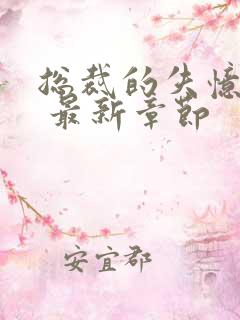 总裁的失憶
最新章節
安宜郡